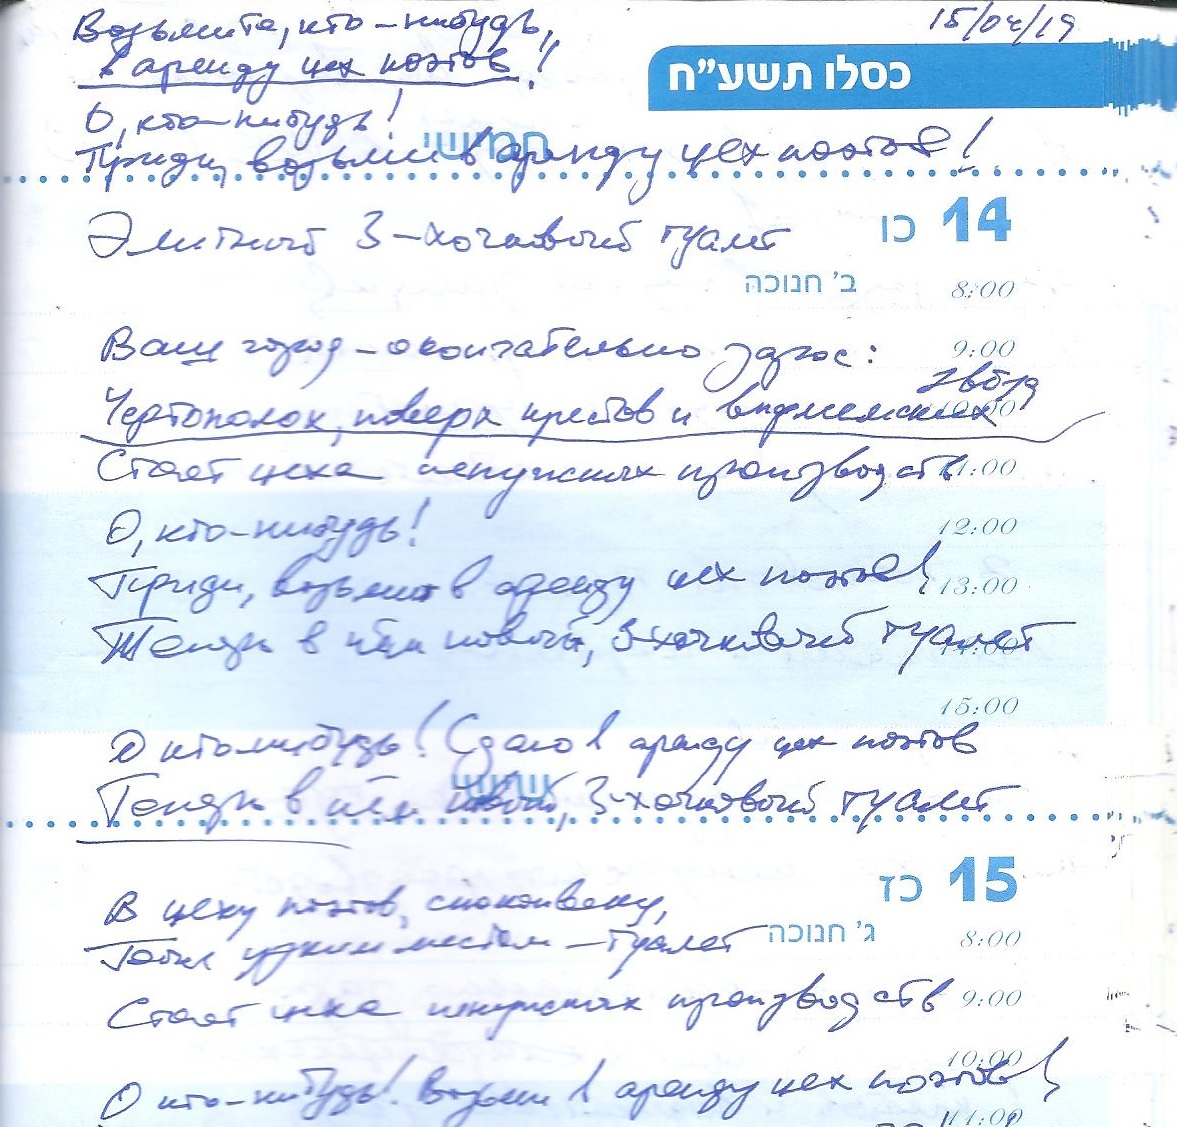 15/04/19
Возьмите, кто-нибудь,
в аренду цех поэтов!
כסלו תשע״ח
О, кто-нибудь!
חמישי
Приди, возьми в аренду цех поэтов!
14 כו
Элитный 3-хочковый туалет
ב' חנוכה 8:00
Ваш город - окончательно
9:00
звёзд
Чертополох, поверх крестов и вифлеемских
10:00
Стоят цеха ненужных производств
11:00
О, кто-нибудь!
12:00
Приди, возьми в аренду цех поэтов!
13:00
Теперь в нём новый, 3-хочковый туалет
14:00
15:00
О кто-нибудь! Сдаю в аренду цех поэтов
שישי
Теперь в нём новый, 3-хочковый туалет
15 כז
В цеху поэтов, спокон веку,
ג' חנוכה 8:00
узким местом - туалет
Стоят цеха ненужных производств
9:00
10:00
О кто-нибудь! Возьми в аренду цех поэтов!
11:00